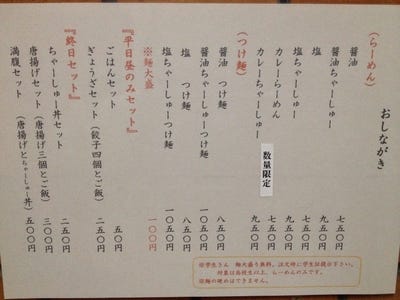 おしながき
(らーめん)
醤油 七五〇円
醤油ちゃーしゅー 九五〇円
塩 七五〇円
塩ちゃーしゅー 九五〇円
カレーらーめん 七五〇円
カレーちゃーしゅー 数量限定 九五〇円
(つけ麺)
醤油 つけ麺 八五〇円
醤油ちゃーしゅーつけ麺 一〇五〇円
塩 つけ麺 八五〇円
塩ちゃーしゅーつけ麺 一〇五〇円
※麺大盛 一〇〇円
『平日昼のみセット』
ごはんセット 五〇円
ぎょうざセット (餃子四個とご飯) 二五〇円
『終日セット』
ちゃーしゅー丼セット 二五〇円
唐揚げセット (唐揚げ三個とご飯) 三〇〇円
満腹セット (唐揚げとちゃーしゅー丼) 五〇〇円
※学生さん 麺大盛り無料。注文時に学生証提示下さい。
対象は高校生以上、らーめんのみです。
※麺の硬めはできません。